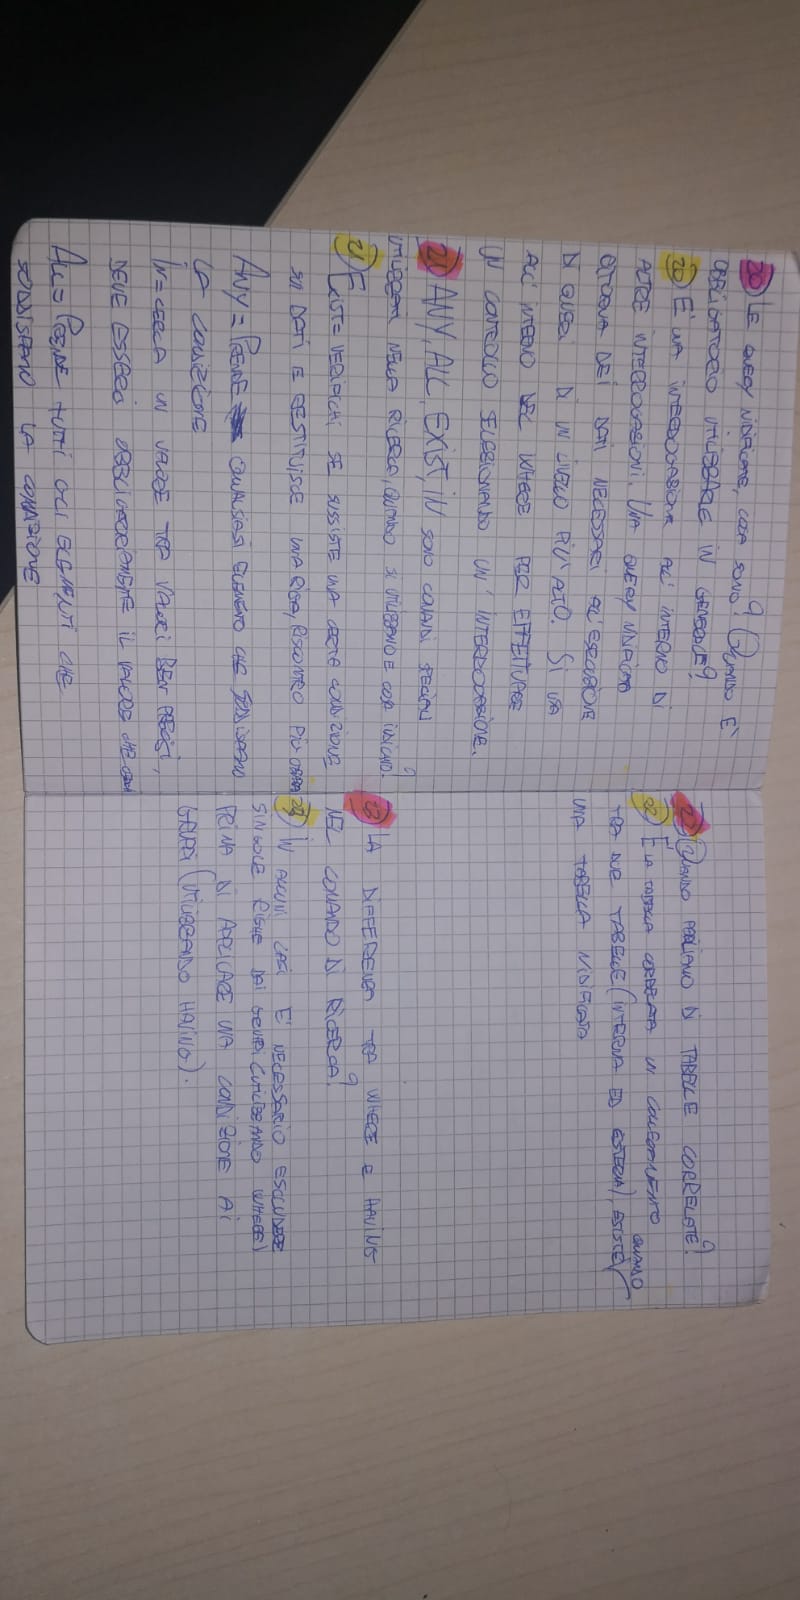 20) LE QUERY NIDIFICATE, COSA SONO? QUANDO È
OBBLIGATORIO UTILIZZARLE IN GENERALE?
20) È UNA INTERROGAZIONE ALL'INTERNO DI
ALTRE INTERROGAZIONI. UNA QUERY NIDIFICATA
RITORNA DEI DATI NECESSARI ALL'ESECUZIONE
DI QUERI DI UN LIVELLO PIU' ALTO. SI USA
ALL'INTERNO DEL WHERE PER EFFETTUARE
UN CONTROLLO SELEZIONANDO UN' INTERROGAZIONE.
21) ANY, ALL, EXIST, IN SONO COMANDI SPECIALI
UTILIZZATI NELLA RICERCA, QUANDO SI UTILIZZANO E COSA INDICANO?
21) EXIST= VERIFICHI SE SUSSISTE UNA CERTA CONDIZIONE
SUI DATI E RESTITUISCE UNA RIGA, RISCONTRO PIÙ
ANY = PRENDE QUALSIASI ELEMENTO CHE SODDISFANO
LA CONDIZIONE
IN= CERCA UN VALORE TRA VALORI BEN PRECISI,
DEVE ESSERCI OBBLIGATORIAMENTE IL VALORE CHE
ALL= PRENDE TUTTI GLI ELEMENTI CHE
SODDISFANO LA CONDIZIONE
22) QUANDO PARLIAMO DI TABELLE CORRELATE?
22) È LA TABELLA CORRELATA UN COLLEGAMENTO
TRA DUE TABELLE (INTERNA ED ESTERNA), QUANDO ESISTE
UNA TABELLA NIDIFICATA
23) LA DIFFERENZA TRA WHERE E HAVING
NEL COMANDO DI RICERCA?
23) IN ALCUNI CASI E' NECESSARIO ESCLUDERE
SINGOLE RIGHE DAI GRUPPI (UTILIZZANDO WHERE)
PRIMA DI APPLICARE UNA CONDIZIONE AI
GRUPPI (UTILIZZANDO HAVING).